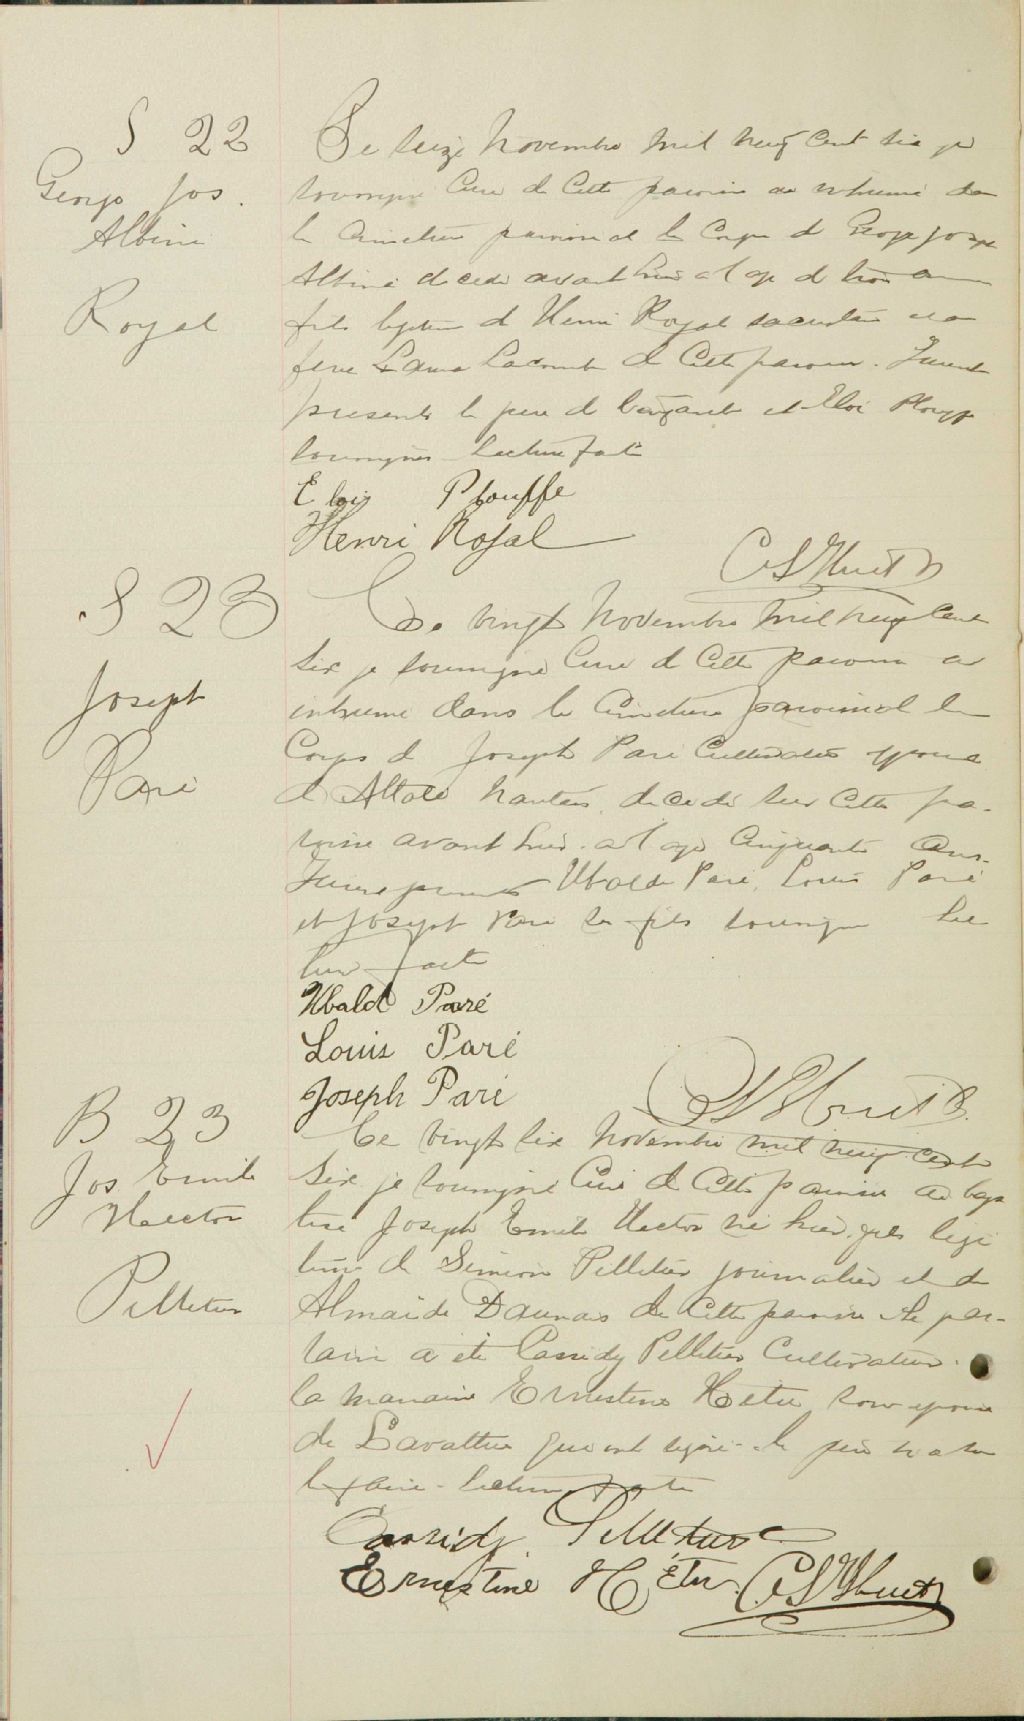 S 22
George Jos.
Albini
Royal
Le seize Novembre mil neuf cent six je
soussigné Curé de Cette paroisse ai inhumé dans
le Cimetière paroissial le Corps de George Joseph
Albini décédé avant hier a l age de trois ans
fils legitime de Henri Royal et de
feue Lacombe de Cette paroisse. Furent
presents le pere de l'enfant et Eloi Plouffe
soussignés lecture faite
Eloi Plouffe
Henri Royal
S 23
Joseph
Paré
Ce vingt Novembre mil neuf cent
six je soussigné Curé de Cette paroisse ai
inhumé dans le Cimetière paroissial le
Corps de Joseph Paré Cultivateur epoux
de décédé sur Cette pa-
roisse avant hier a l age Cinquante Ans.
Furent presents Ubalde Paré, Louis Paré
et Joseph Paré ses fils soussignés lec
ture faite
Ubald Paré
Louis Paré
Joseph Paré
B 23
Jos Emile
Hector
Pelletier
Ce vingt six Novembre mil neuf cent
Six je soussigné Curé de Cette paroisse ai bap
tisé Joseph Emile Hector né hier, fils legi
time de Simeon Pelletier journalier et de
Almaide Daunais de Cette paroisse. Le par-
rain a été Cassidy Pelletier Cultivateur.
la marraine Ernestine Hetu son epouse
de Lavaltrie qui ont signé. le pere n a su
le faire. lecture faite
Cassidy Pelletier
Ernestine Hétu